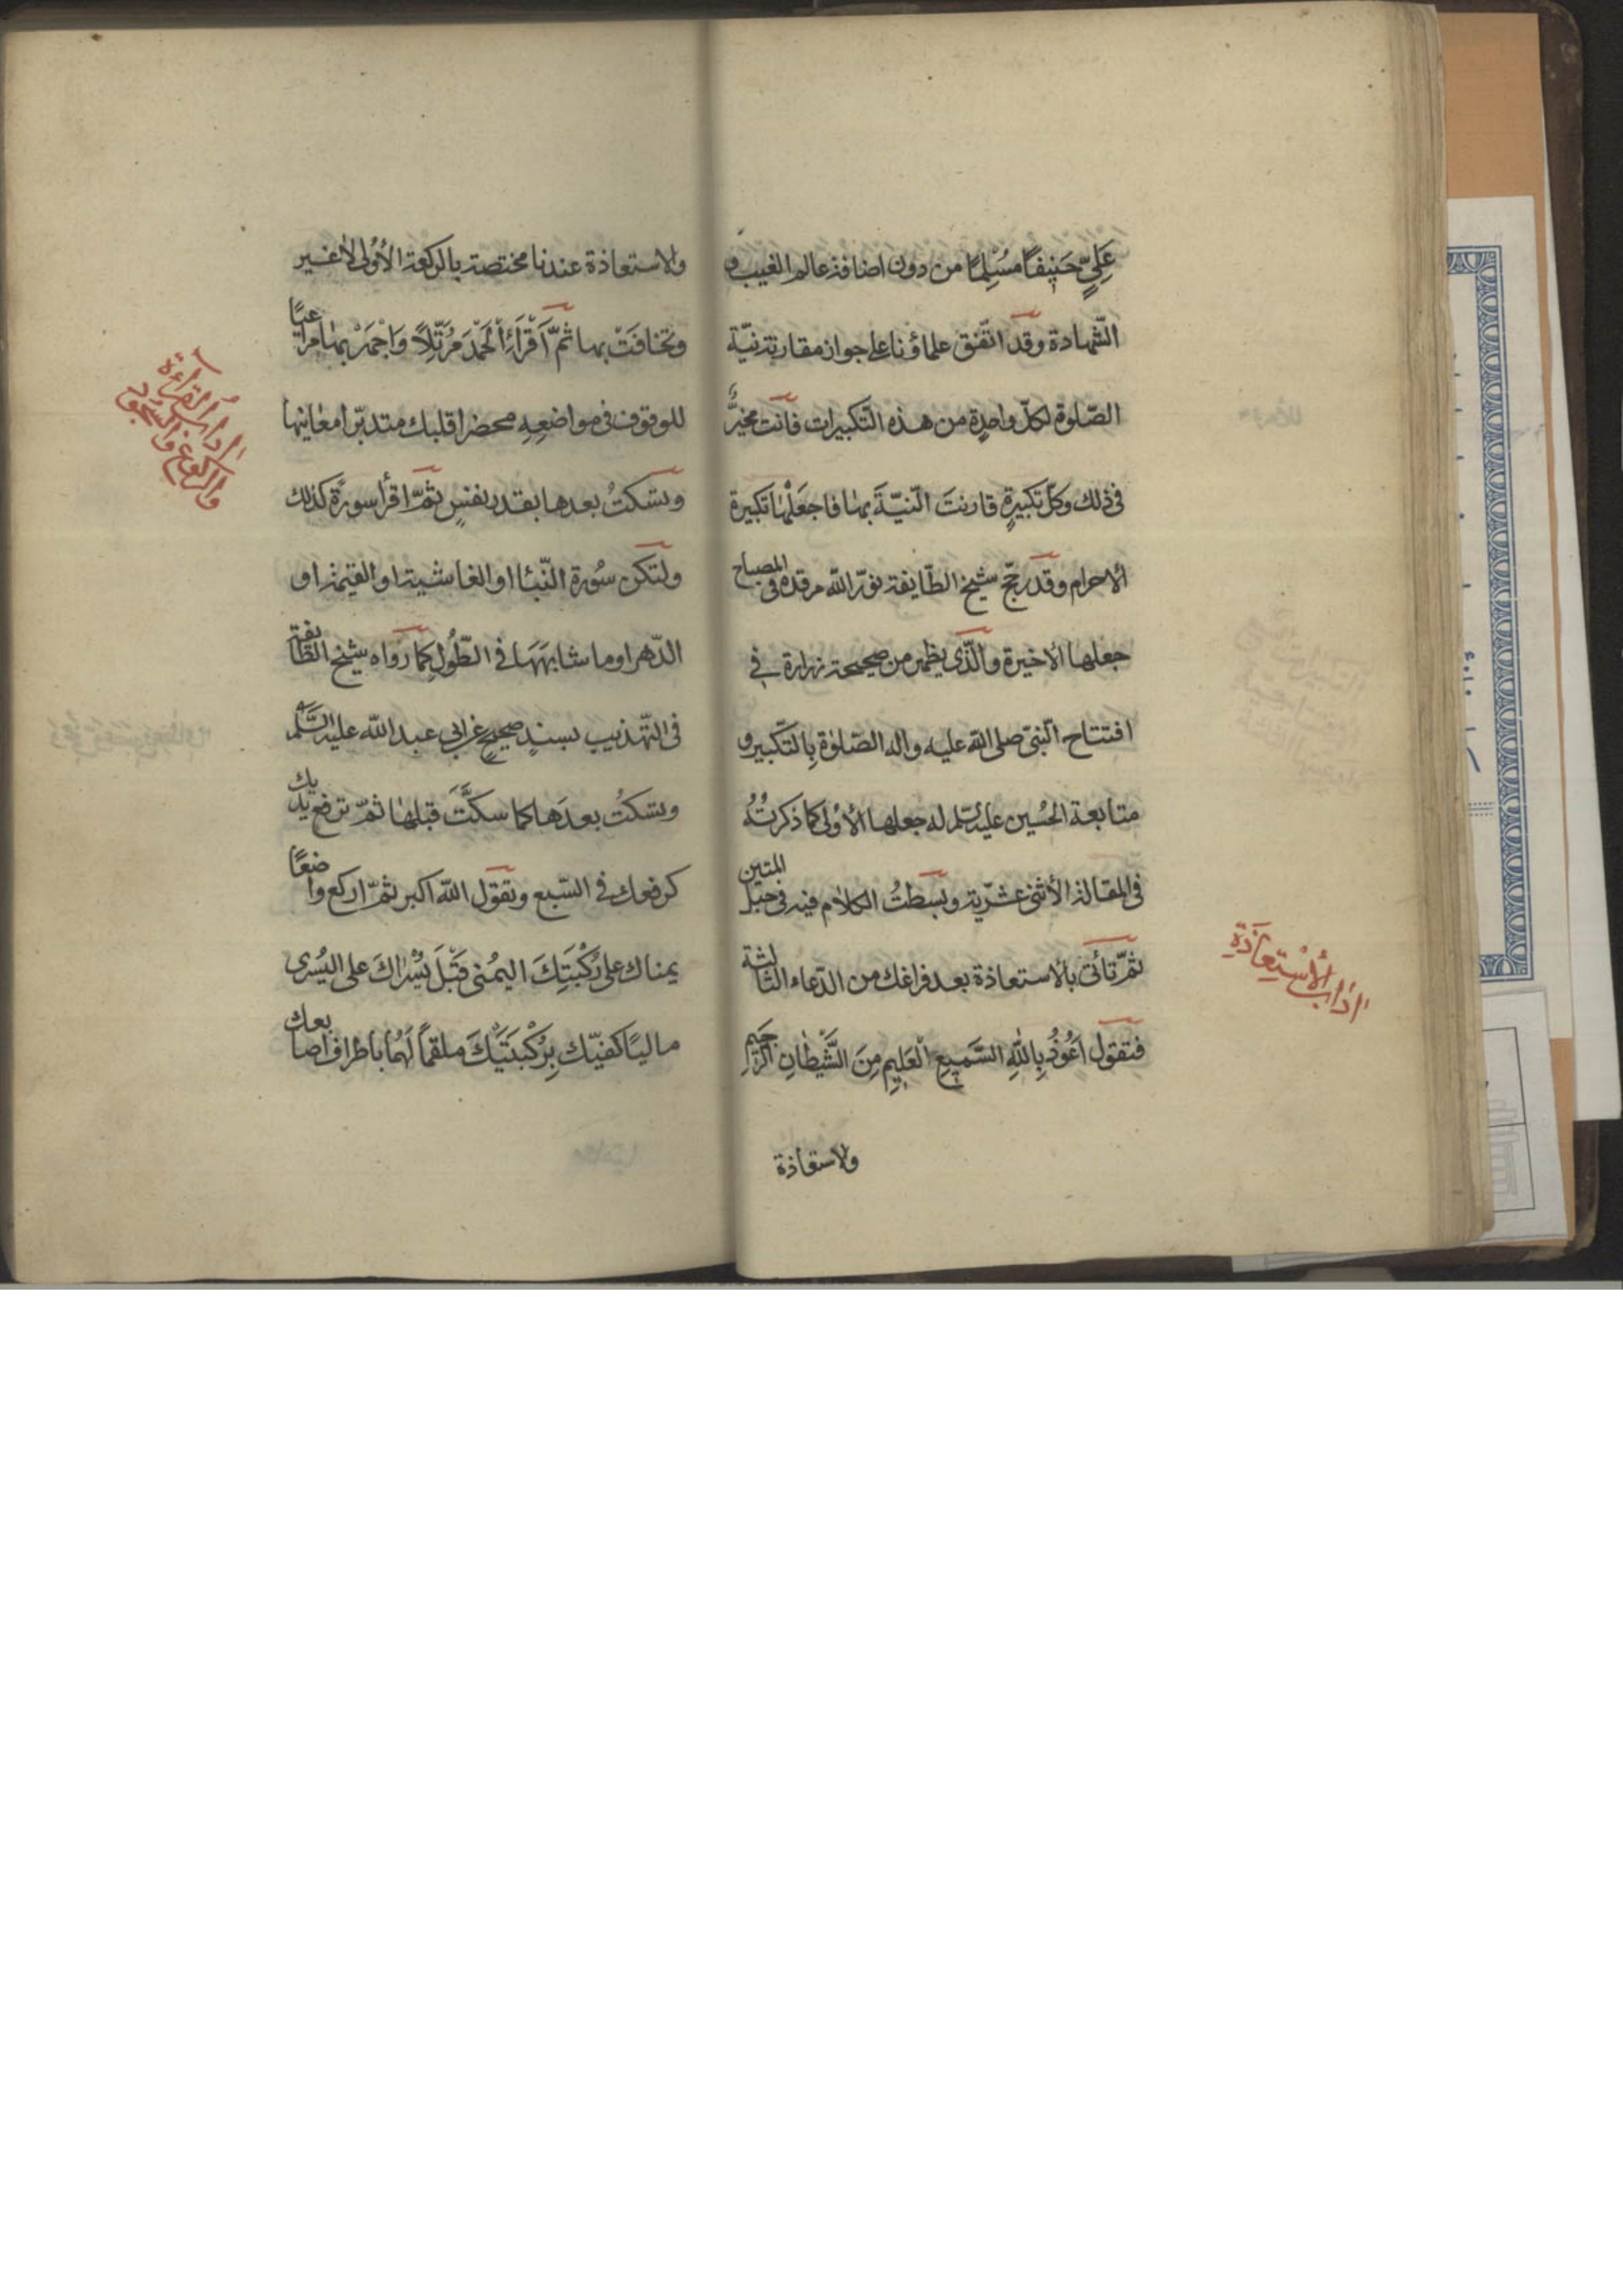 عَلِيٍّ حَنِيفًا مُسْلِمًا من دون اضافة عالم الغيب و
الشّهادة وقد اتّفق علماؤنا على جواز مقارنة نيّة
الصّلوة لكلّ واحدةٍ من هذه التّكبيرات فانت مخيّرٌ
فى ذلك وكلّ تكبيرةٍ قارنتَ النّيّةَ بها فاجعَلْها تكبيرة
الاحرام وقد رجّح شيخ الطّايفة نوّر الله مرقده فى المصباح
جعلها الاخيرة والّذى يظهر من صحيحة زرارة في
افتتاح النّبىّ صلى الله عليه واله الصّلوة بِالتّكبير و
متابعة الحُسين عليه السّلم له جعلها الأولى كما ذكرتُهُ
فى المقالة الأثنى عشريّة وبسَطتُ الكلام فيه فى حبل المتين
ثمّ تأتى بالاستعاذة بعد فراغك من الدّعاء الثالثة
فتقول اَعُوذُ بِاللّهِ السَّمِيعِ الْعَلِيمِ مِنَ الشَّيْطَانِ الرَّجِيمِ
والاستعاذة
اداب الأِسْتِعَاذَةِ
والاستعاذة عندنا مختصة بالركعة الأولى لاغير
وتخافَتْ بها ثمّ اَقْرَأِ الْحَمْدَ مُرَتِّلاً وَاجْهَرْ بها مراعيًا
للوقوف فى مواضعِهِ محضرا قلبك متدبّرا معانيها
وتسكتُ بعدها بقدر نفسٍ ثمّ اقرأ سورة كذلك
ولتكن سُورة النّبأ او الغاشية او القيمة او
الدّهر او ما شابهَهَا فى الطّولِ كما رواه شيخ الطّائفة
فى التّهذيب بسندٍ صحيحٍ عن ابى عبد الله عليه السّلم
وتسكتُ بعدَها كما سكتَّ قبلها ثمّ ترفع يديك
كرفعك فى السّبع وتقول الله اكبر ثمّ اركع واضعًا
يمناك على رُكْبَتِكَ اليمُنى قَبْلَ يُسْراكَ على اليُسرى
ماليًا كفيّك بِرُكْبَتَيْكَ ملقمًا لَهُما باطراف اصابعك
اداب القراءة
والركوع والسجود